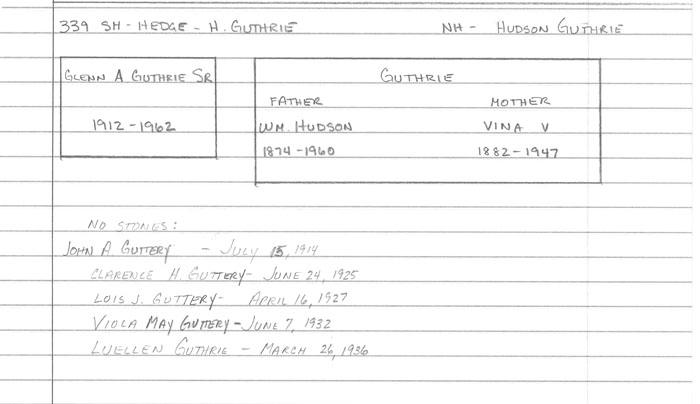 339 SH - HEDGE - H. GUTHRIE NH - HUDSON GUTHRIE
GLENN A GUTHRIE SR
1912 - 1962
GUTHRIE
FATHER MOTHER
WM. HUDSON VINA V
1874 - 1960 1882 - 1947
NO STONES:
JOHN A. GUTTERY - JULY 15, 1914
CLARENCE H. GUTTERY - JUNE 24, 1925
LOIS J. GUTTERY - APRIL 16, 1927
VIOLA MAY GUTTERY - JUNE 7, 1932
LUELLEN GUTHRIE - MARCH 26, 1936